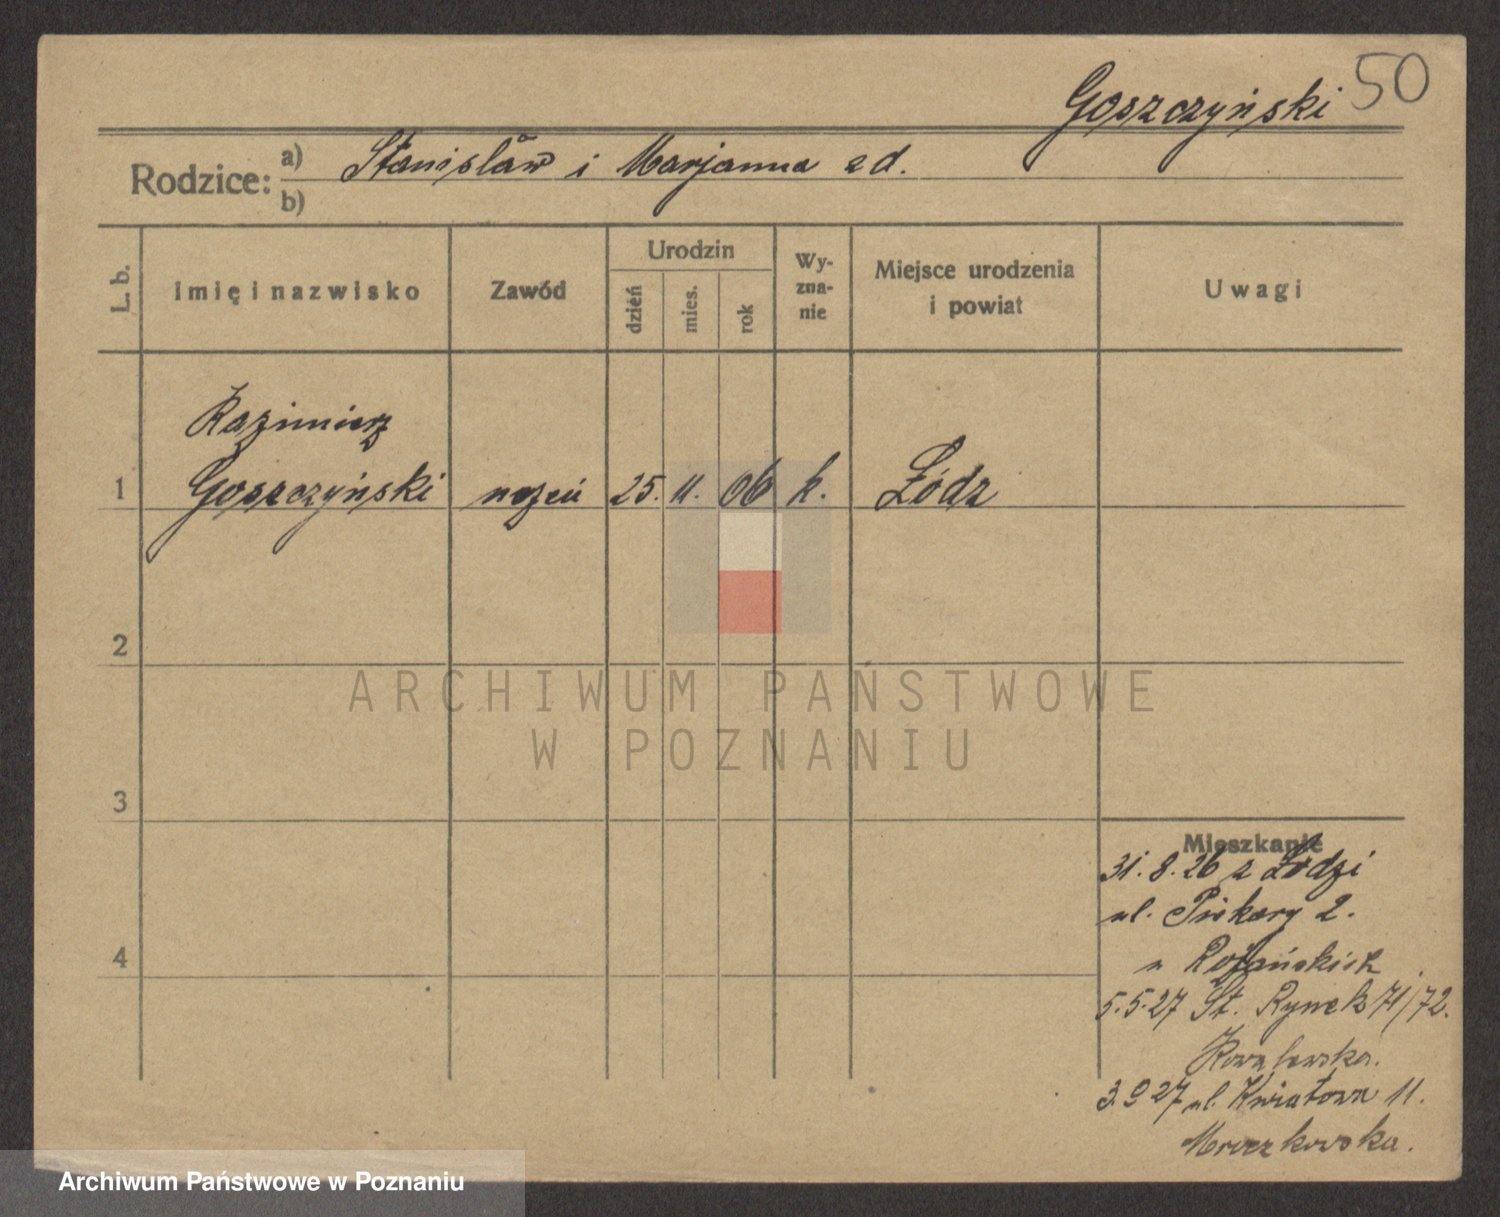 Goszczyński 50
Rodzice: a) Stanisław i Marjanna zd.
b)
L. b. Imię i nazwisko Zawód Urodzin dzień mies. rok Wy-zna-nie Miejsce urodzenia i powiat Uwagi
Kazimierz
1 Goszczyński uczeń 25. 11. 06 k. Łódz
2
ARCHIWUM PAŃSTWOWE
W POZNANIU
3
Mieszkanie
31. 8. 26 z Łodzi
ul. Piekary 2.
4
u Rożańskich
5.5.27 St. Rynek 71/72.
Kowalewska.
3.9 27 ul. Kwiatowa 11.
Mroczkowska.
Archiwum Państwowe w Poznaniu